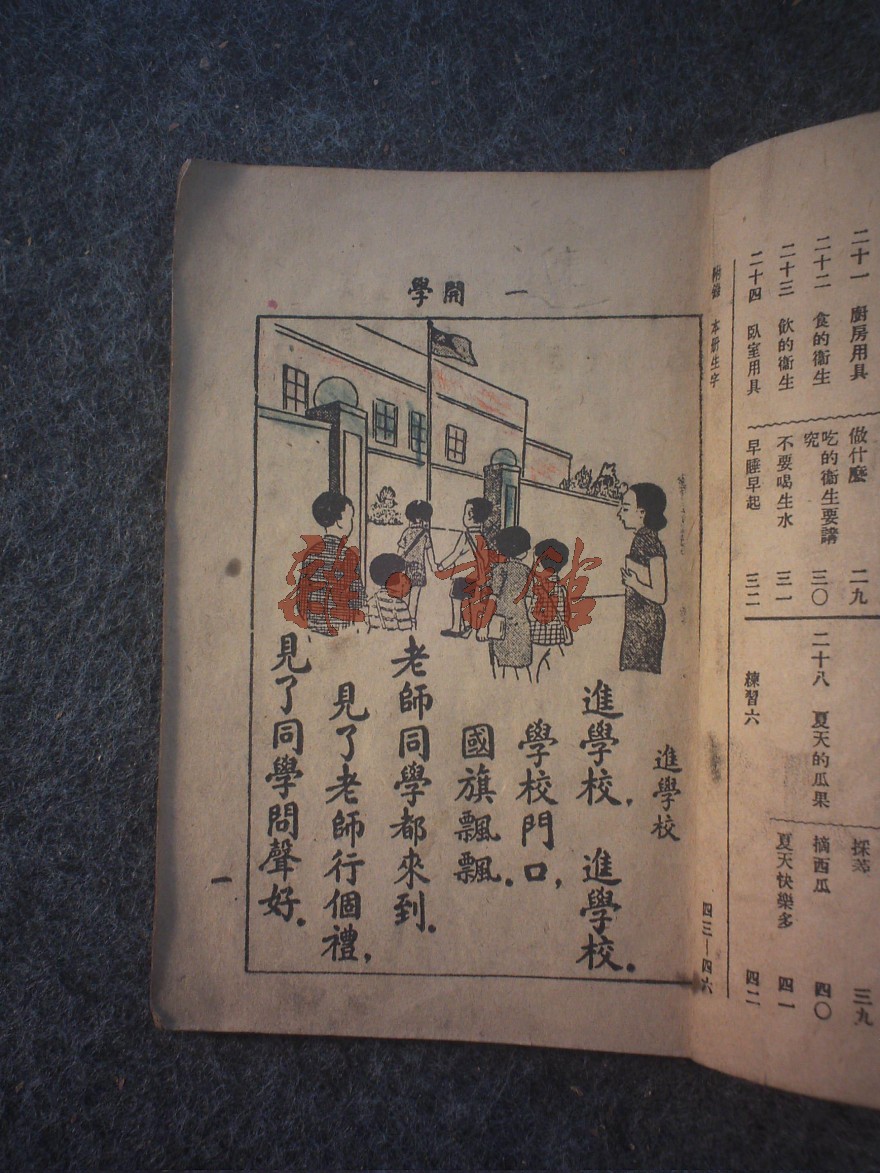 二十一 廚房用具
做什麼 二九
二十二 食的衞生
吃的衞生要講究 三〇
二十三 飲的衞生
不要喝生水 三一
二十四 臥室用具
早睡早起 三二
採
三九
二十八 夏天的瓜果
摘西瓜 四〇
夏天快樂多 四一
練習六
四二
附錄 本冊生字
四三—四六
一 開學
進學校
進學校，進學校。
學校門口，
國旗飄飄。
老師同學都來到。
見了老師行個禮，
見了同學問聲好。
一
雜·書館